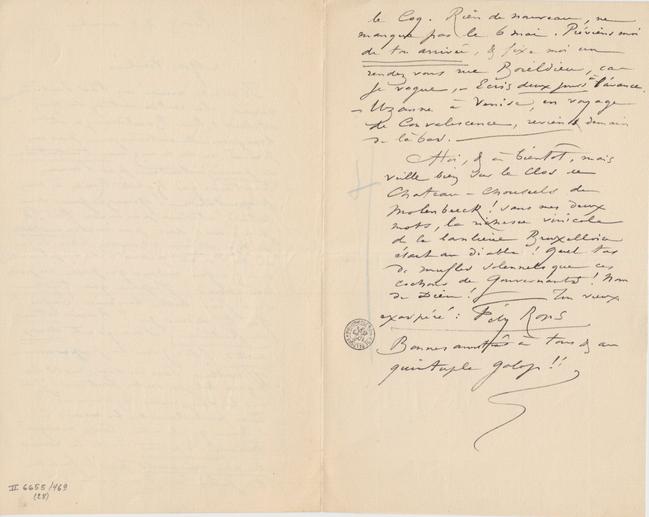 le Coq. Rien de nouveau, ne
manque pas le 6 mai. Préviens moi
de ton arrivée, & fixe moi un
rendez vous rue Boïeldieu, car
je vogue, – Ecris deux jours à l'avance.
– Uzanne à Venise, en voyage
de Convalescence, reviens demain
de là bas.
Toi, & à bientôt, mais
veille bien sur le Clos
Chateau – de
Molenbeeck! sans mes deux
mots, la richesse vinicole
de la banlieue Bruxelloise
était au diable! Quel tas
de mufles solennels que ces
cochons de Gouvernants! Nom
de Dieu! Ton vieux
exaspéré: Fély Rops
Bonnes amitiés à tous & au
quintuple galop!!
II 6655/469
(28)